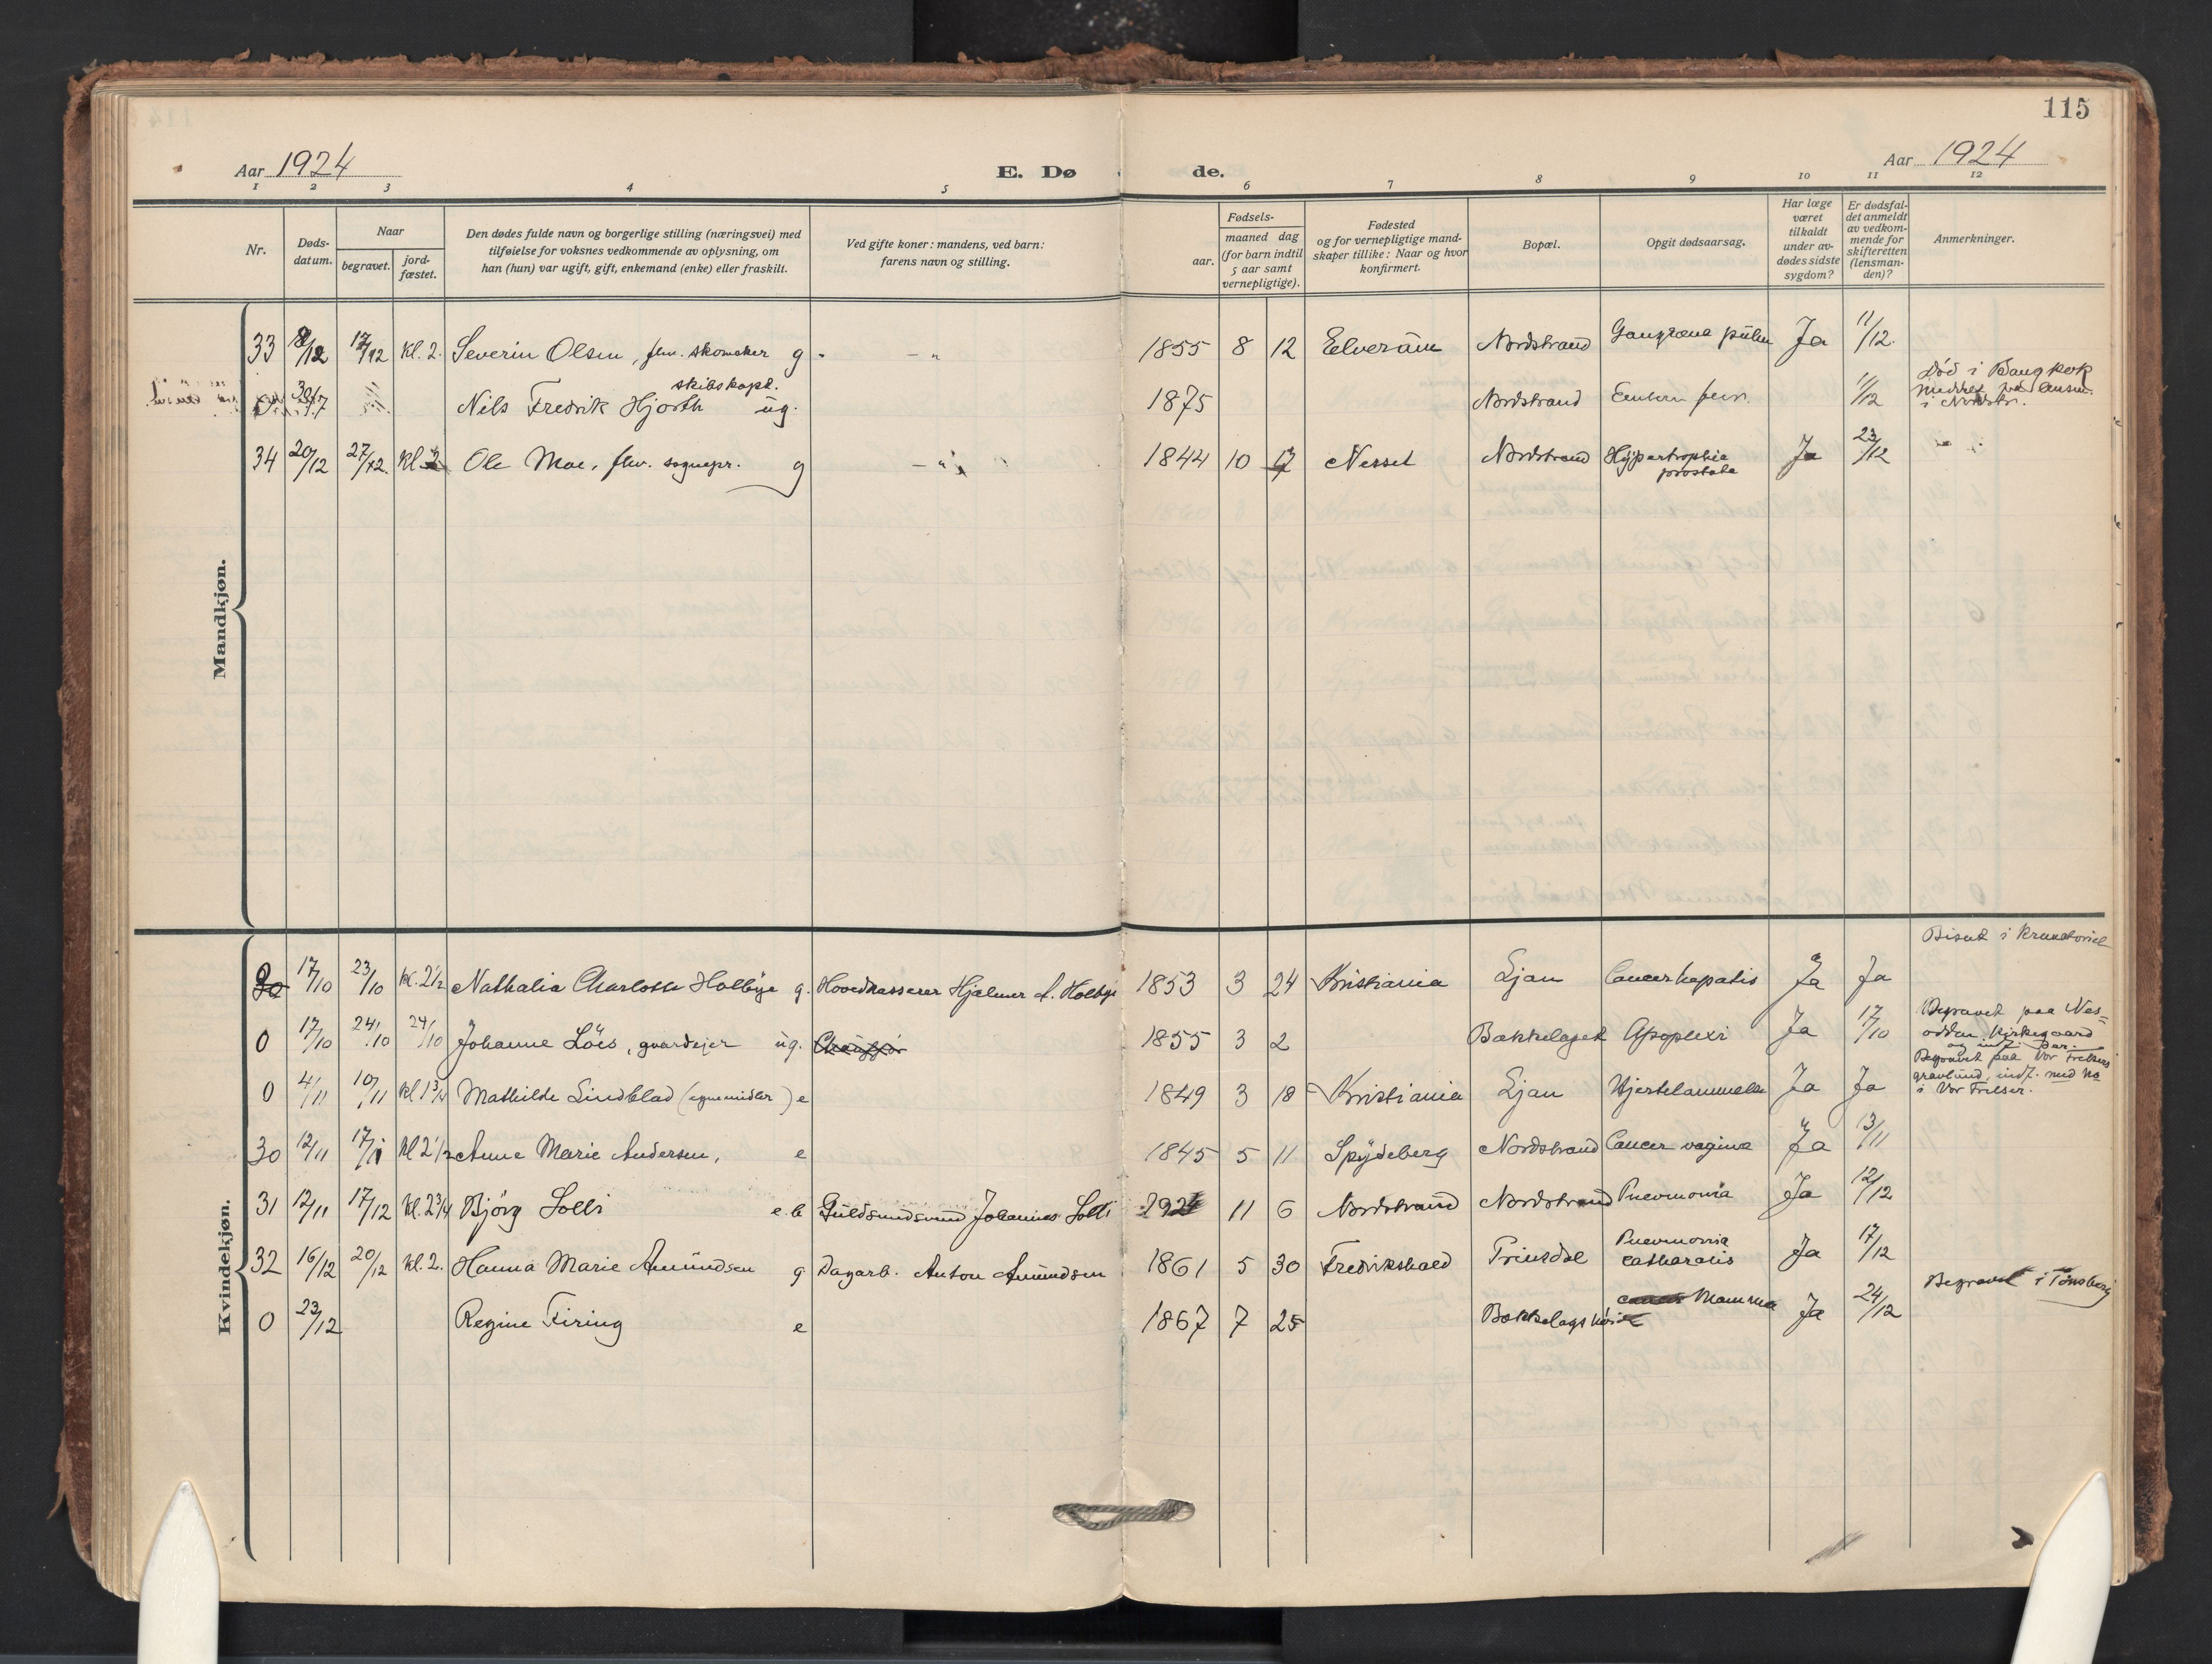 115
Aar 1924 E. Dø de. Aar 1924
1 2 3 4 5 6 7 8 9 10 11 12
Nr.
Døds-
datum.
Naar
begravet.
jord-
fæstet.
Den dødes fulde navn og borgerlige stilling (næringsvei) med
tilføielse for voksnes vedkommende av oplysning, om
han (hun) var ugift, gift, enkemand (enke) eller fraskilt.
Ved gifte koner: mandens, ved barn:
farens navn og stilling.
Fødsels-
aar.
maaned dag
(for barn indtil
5 aar samt
vernepligtige).
Fødested
og for vernepligtige mand-
skaper tillike: Naar og hvor
konfirmert.
Bopæl.
Opgit dødsaarsag.
Har læge
været
tilkaldt
under av-
dødes sidste
sygdom?
Er dødsfal-
det anmeldt
av vedkom-
mende for
skifteretten
(lensman-
den)?
Anmerkninger.
Mandkjøn.
33 8/12 17/12 Kl. 2. Severin Olsen, fhv. skomaker g - " 1855 8 12 Elverum Nordstrand Gangræna pulm Ja 11/12
30/7 Nils Fredrik Hjorth skibskapt. ug. 1875 Nordstrand 11/12 Død i Bangkok
i Nordstr.
34 20/12 27/12 Kl 2 Ole Moe, fhv. sognepr. g - " 1844 10 17 Nesset Nordstrand Hypertrophia
prostata Ja 23/12
Kvindekjøn.
Biset i Krematoriet
30 17/10 23/10 Kl. 2 1/2 Nathalia Charlotte Holbye g. Hovedkasserer Hjalmer A. Holbye 1853 3 24 Kristiania Ljan Cancer hepatis Ja Ja
0 17/10 24/10 24/10 Johanne Löes, gaardejer ug. Chauffør 1855 3 2 Bækkelaget Apoplexi Ja 17/10 Begravet paa Nes=
odden Kirkegaard
og indf. der.
0 4/11 10/11 Kl 1 3/4 Mathilde Lindblad (egne midler) e 1849 3 18 Kristiania Ljan Hjertelammelse Ja Ja Begravet paa Vor Frelsers
gravlund, indf. med No
i Vor Frelser.
30 12/11 17/11 Kl 2 1/2 Anne Marie Andersen, e 1845 5 11 Spydeberg Nordstrand Cancer vagina Ja 13/11
31 12/11 17/12 Kl. 2 3/4 Bjørg Solli e.b Guldsmedsvend Johannes Solli 1924 11 6 Nordstrand Nordstrand Pneumonia Ja 12/12
32 16/12 20/12 Kl. 2. Hanna Marie Amundsen g Dagarb. Anton Amundsen 1861 5 30 Fredrikshald Prinsdal Pneumonia
catharalis Ja 17/12
0 23/12 Regine Firing e 1867 7 25 Bækkelagshøi cancer Mamma Ja 24/12 Begravet i Tønsberg